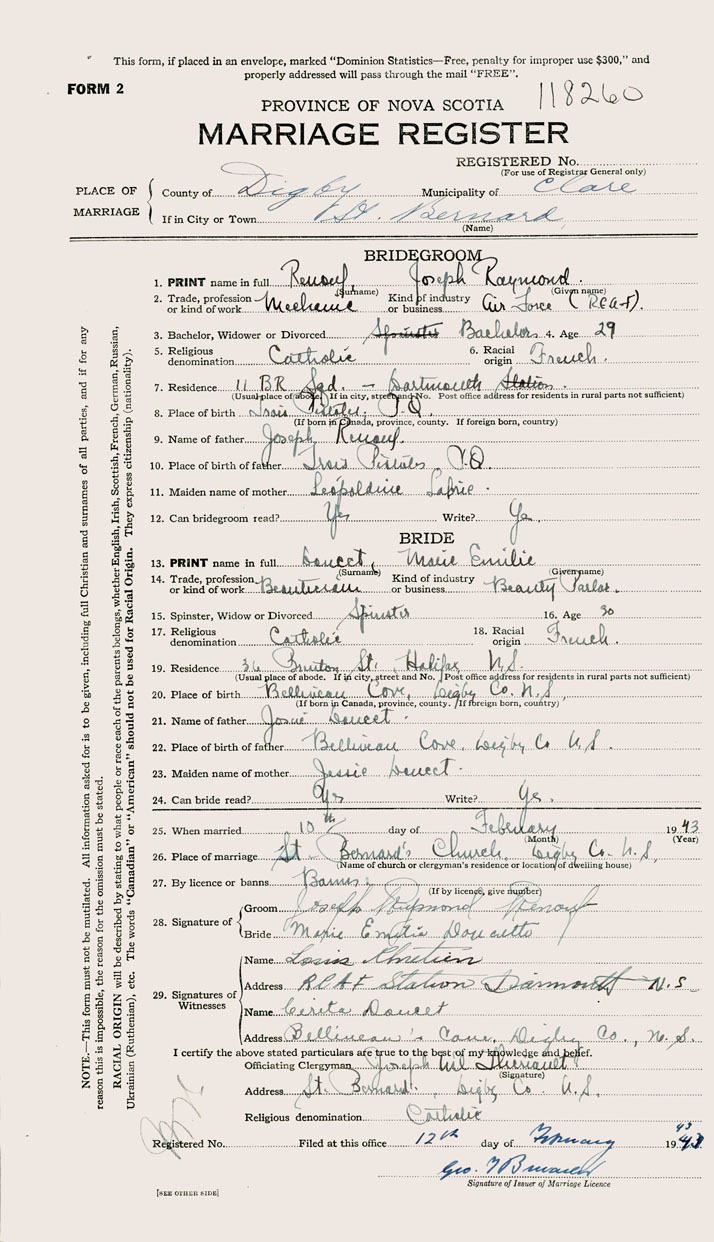 This form, if placed in an envelope, marked "Dominion Statistics—Free, penalty for improper use $300," and
properly addressed will pass through the mail "FREE".
FORM 2
118260
PROVINCE OF NOVA SCOTIA
MARRIAGE REGISTER
REGISTERED No.
(For use of Registrar General only)
PLACE OF MARRIAGE
County of Digby Municipality of Clare
If in City or Town St. Bernard
(Name)
BRIDEGROOM
1. PRINT name in full Renouf Joseph Raymond
(Surname) (Given name)
2. Trade, profession or kind of work Mechanic Kind of industry or business Air Force (RCAF).
3. Bachelor, Widower or Divorced Spinster Bachelor 4. Age 29
5. Religious denomination Catholic 6. Racial origin French.
7. Residence 11 BR Sqd. - Dartmouth Station.
(Usual place of abode. If in city, street and No. Post office address for residents in rural parts not sufficient)
8. Place of birth Trois Pistoles, P.Q.
(If born in Canada, province, county. If foreign born, country)
9. Name of father Joseph Renouf.
10. Place of birth of father Trois Pistoles, P.Q.
11. Maiden name of mother Leopoldine
12. Can bridegroom read? Yes Write? Yes.
BRIDE
13. PRINT name in full Doucet, Marie Emilie
(Surname) (Given name)
14. Trade, profession or kind of work Beautician Kind of industry or business Beauty Parlor.
15. Spinster, Widow or Divorced Spinster 16. Age 30
17. Religious denomination Catholic 18. Racial origin French.
19. Residence 36 St., Halifax, N.S.
(Usual place of abode. If in city, street and No. Post office address for residents in rural parts not sufficient)
20. Place of birth Bellineau Cove, Digby Co. N.S.
(If born in Canada, province, county. If foreign born, country)
21. Name of father Josué Doucet.
22. Place of birth of father Bellineau Cove, Digby Co N.S.
23. Maiden name of mother Jessie Doucet.
24. Can bride read? Yes Write? Yes.
25. When married 10th day of February 1943
(Month) (Year)
26. Place of marriage St. Bernard's Church, Digby Co. N.S.
(Name of church or clergyman's residence or location of dwelling house)
27. By licence or banns Banns
(If by licence, give number)
28. Signature of
Groom Joseph Raymond Renouf
Bride Marie Emilie Doucette
29. Signatures of Witnesses
Name Louis Chretien
Address RCAF Station Dartmouth N.S
Name Cerita Doucet
Address Bellineau's Cove, Digby Co., N.S.
I certify the above stated particulars are true to the best of my knowledge and belief.
Officiating Clergyman Joseph Theriault
(Signature)
Address St. Bernard, Digby Co. N.S.
Religious denomination Catholic
Registered No. Filed at this office 12th day of February 1943
43
Geo.
Signature of Issuer of Marriage Licence
[SEE OTHER SIDE]
NOTE.—This form must not be mutilated. All information asked for is to be given, including full Christian and surnames of all parties, and if for any
reason this is impossible, the reason for the omission must be stated.
RACIAL ORIGIN will be described by stating to what people or race each of the parents belongs, whether English, Irish, Scottish, French, German, Russian,
Ukrainian (Ruthenian), etc. The words "Canadian" or "American" should not be used for Racial Origin. They express citizenship (nationality).